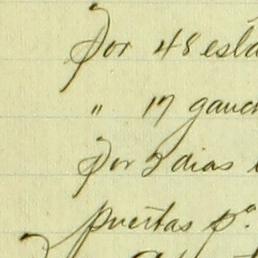 Por 48 esla
" 17 gauc
Por 2 dias
puertas pª.